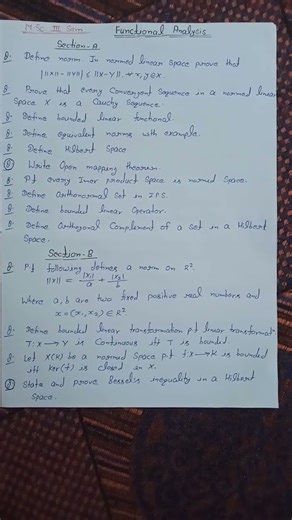 M.Sc III Sem. Functional Analysis
Section-A
Q. Define norm In normed linear Space prove that
| ||x|| - ||y|| | ≤ ||x-y||. ∀ x,y∈X.
Q. Prove that every Convergent Sequence in a normed linear
Space X is a Cauchy Sequence.
Q. Define bounded linear functional.
Q. Define equivalent norms with example.
Q. Define Hilbert Space
Q. Write Open mapping theorem.
Q. Pt every Inner product Space is normed Space.
Q. Define Orthonormal Set in I.P.S.
Q. Define bounded linear Operator.
Q. Define Orthogonal Complement of a set in a Hilbert
Space.
Section-B
Q. Pt following defines a norm on R².
||x|| = |x₁|/a + |x₂|/b
Where a, b are two fixed positive real numbers and
x=(x₁,x₂)∈R²
Q. Define bounded linear transformation pt linear transformat
T:X→Y is Continuous iff T is bounded.
Q. Let X(K) be a normed Space pt f:X→K is bounded
iff Ker(f) is closed in X.
Q. State and prove Bessel's inequality in a Hilbert
Space.